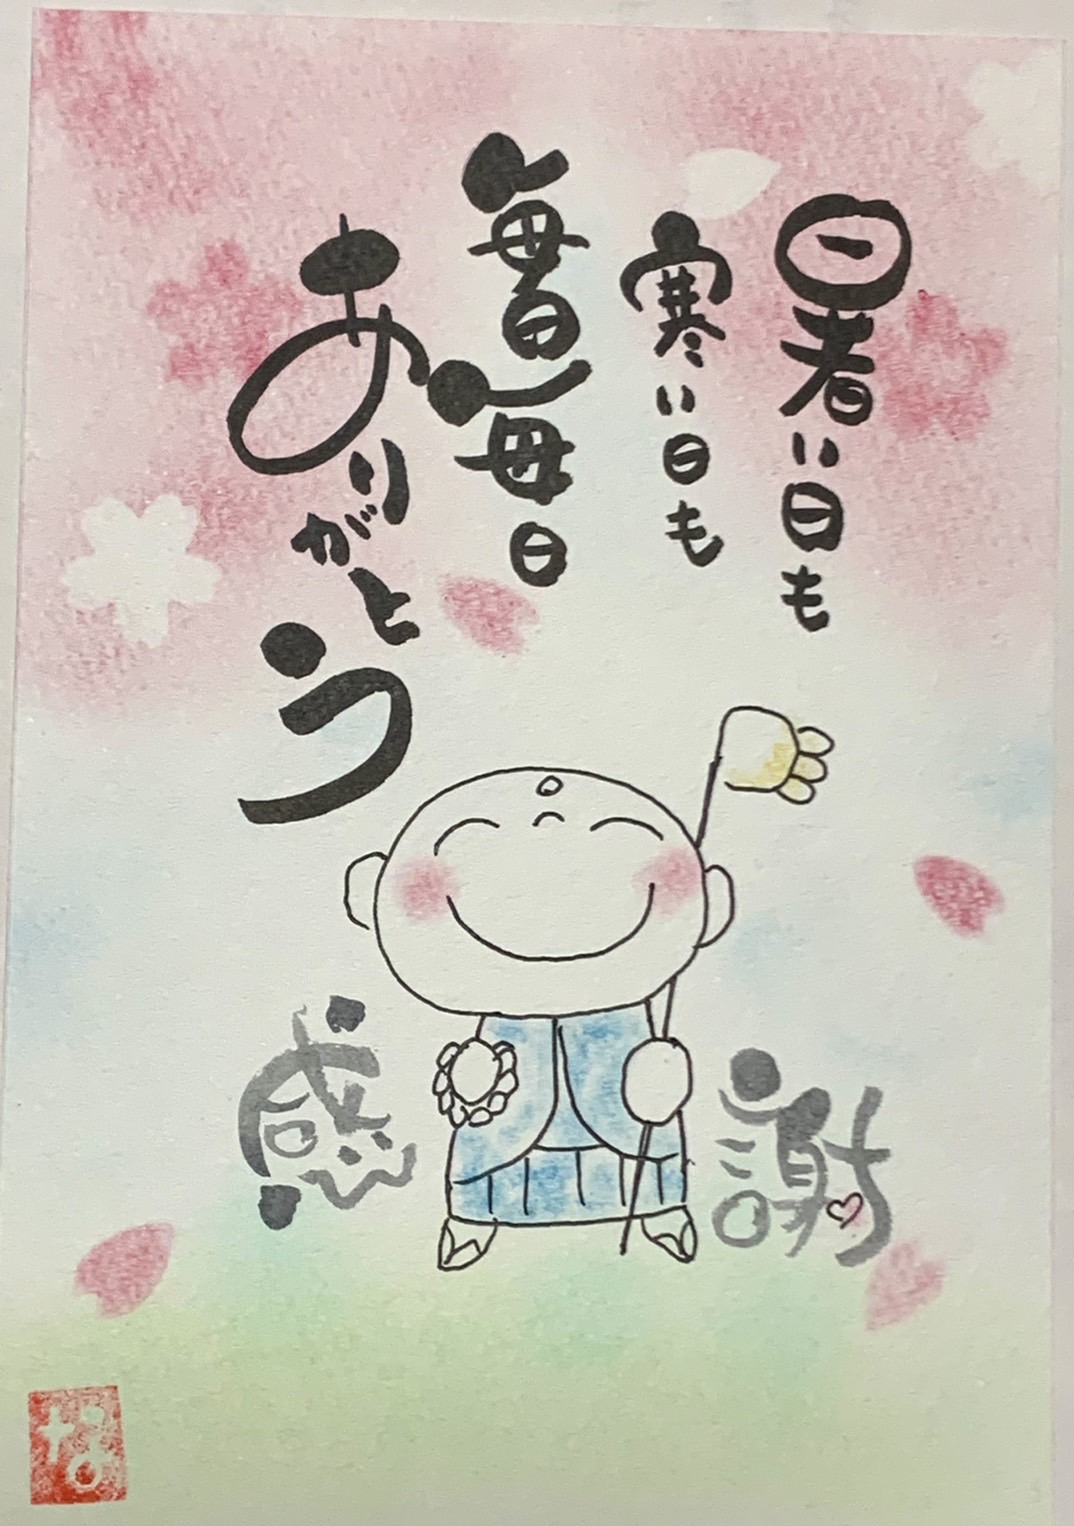 暑い日も
寒い日も
毎日毎日
ありがとう
感謝
な